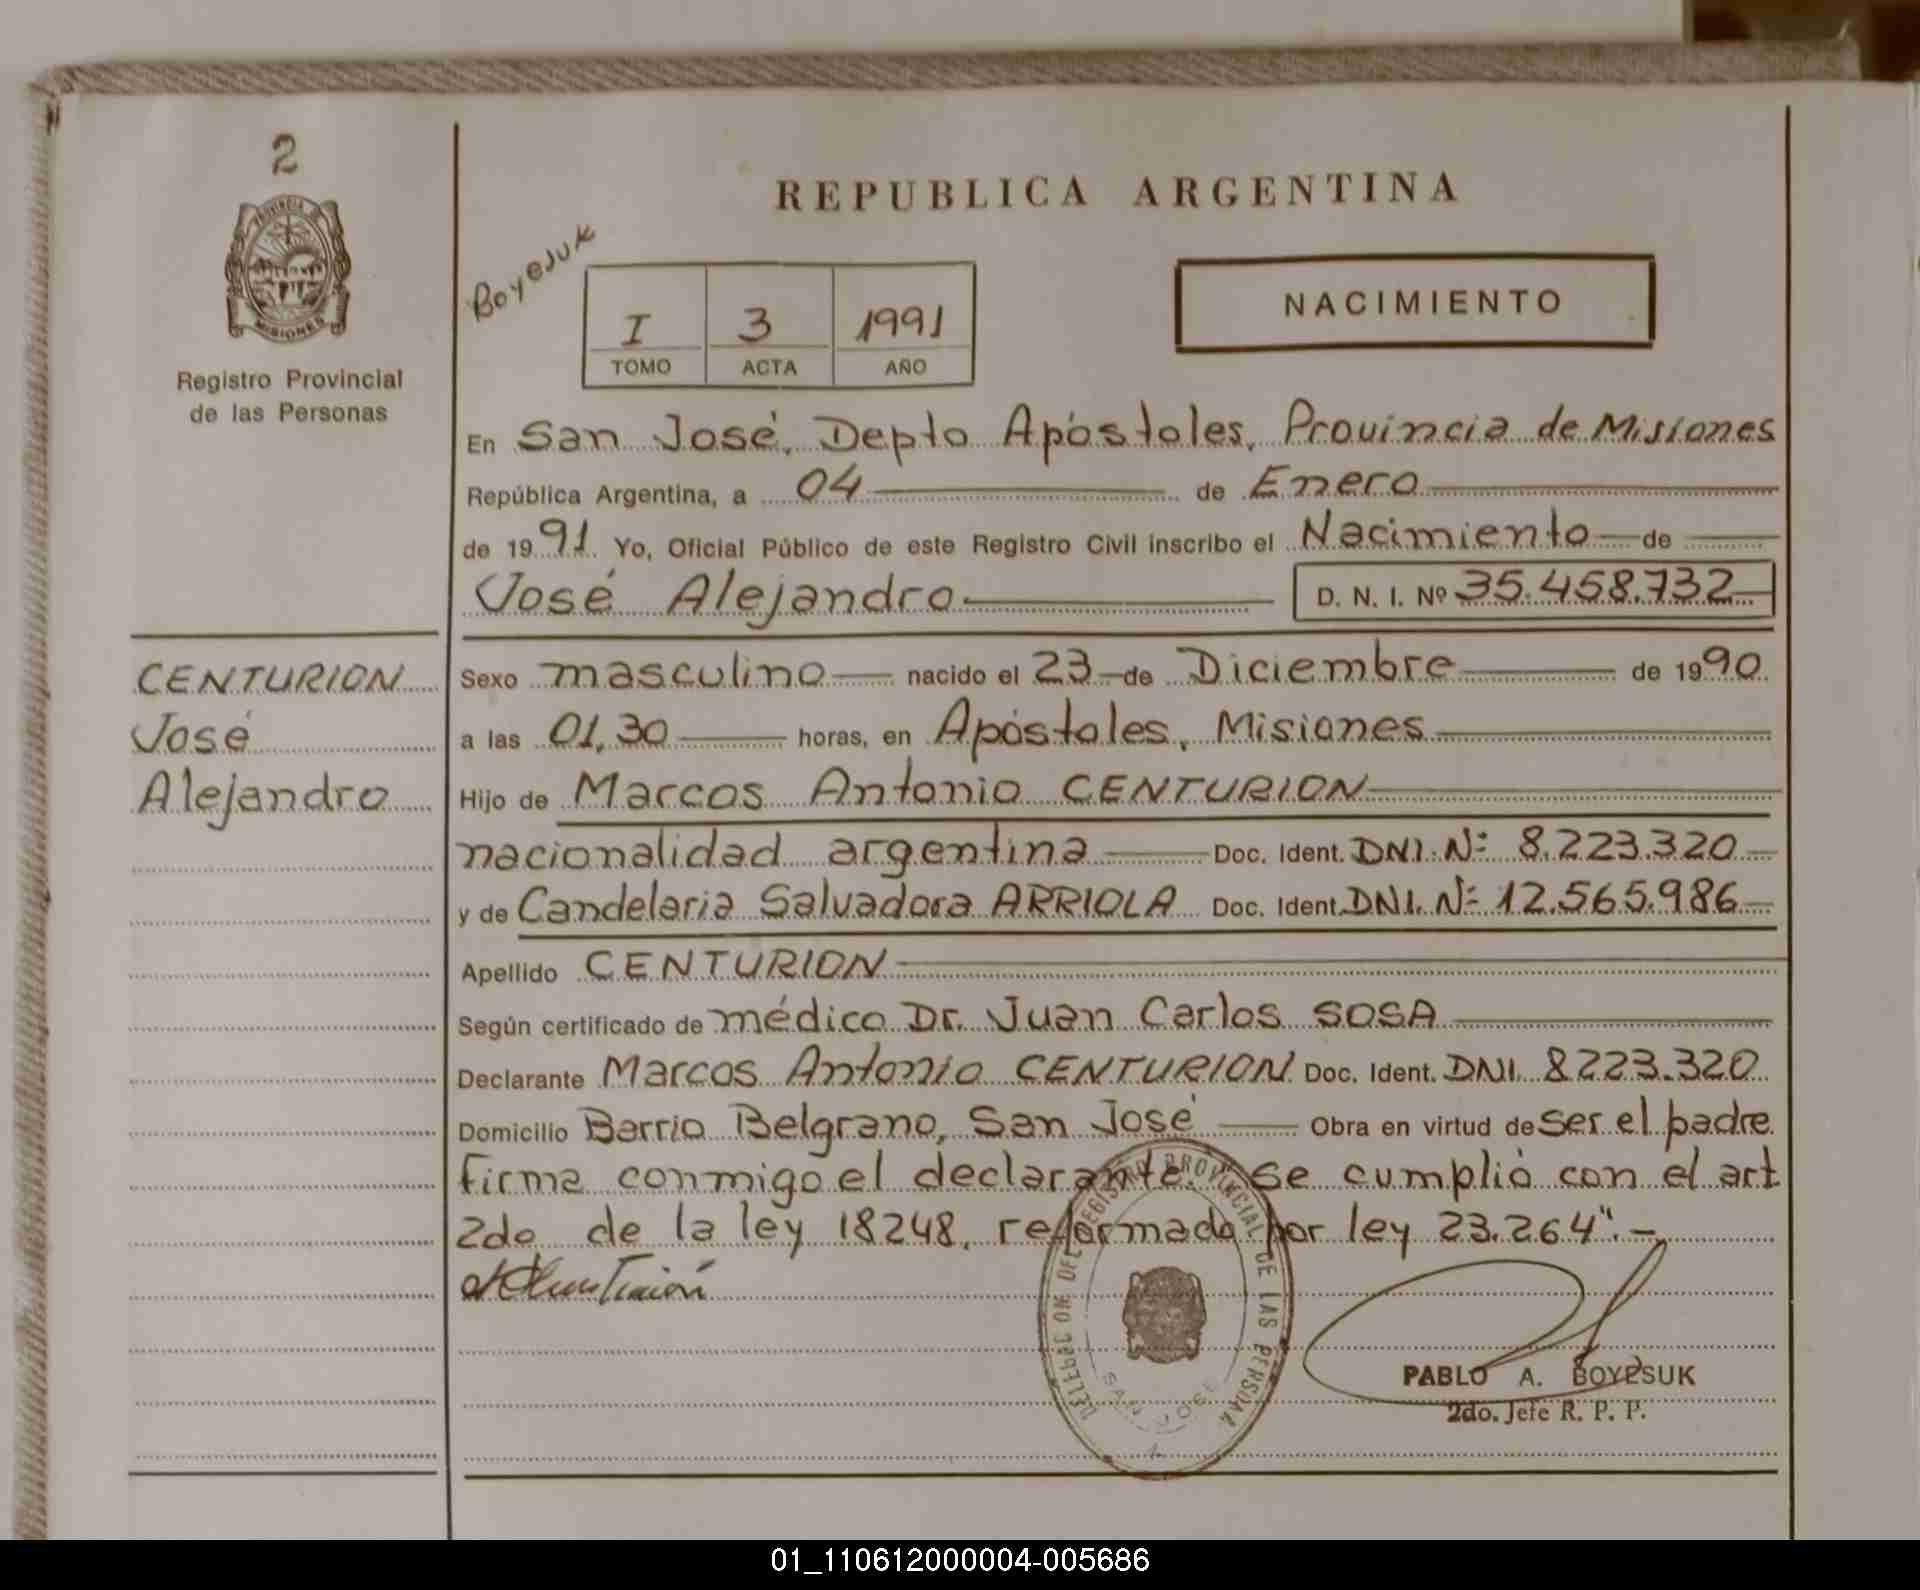 2
PROVINCIA DE
MISIONES
Registro Provincial
de las Personas
REPUBLICA ARGENTINA
Boyejuk
I 3 1991
TOMO ACTA AÑO
NACIMIENTO
En San José, Depto Apóstoles, Provincia de Misiones
República Argentina, a 04 de Enero
de 1991 Yo, Oficial Público de este Registro Civil inscribo el Nacimiento de
José Alejandro D. N. I. Nº 35.458.732
CENTURION
José
Alejandro
Sexo masculino nacido el 23 de Diciembre de 1990
a las 01,30 horas, en Apóstoles, Misiones
Hijo de Marcos Antonio CENTURION
nacionalidad argentina Doc. Ident. DNI. Nº 8.223.320
y de Candelaria Salvadora ARRIOLA Doc. Ident. DNI. Nº 12.565.986
Apellido CENTURION
Según certificado de médico Dr. Juan Carlos SOSA
Declarante Marcos Antonio CENTURION Doc. Ident. DNI 8223.320
Domicilio Barrio Belgrano, San José Obra en virtud de ser el padre
firma conmigo el declarante. "Se cumplió con el art
2do de la ley 18248, reformado por ley 23.264".-
DELEGACION DEL REGISTRO PROVINCIAL DE LAS PERSONAS
SAN JOSE
PABLO A. BOYESUK
2do. Jefe R. P. P.
01_110612000004-005686